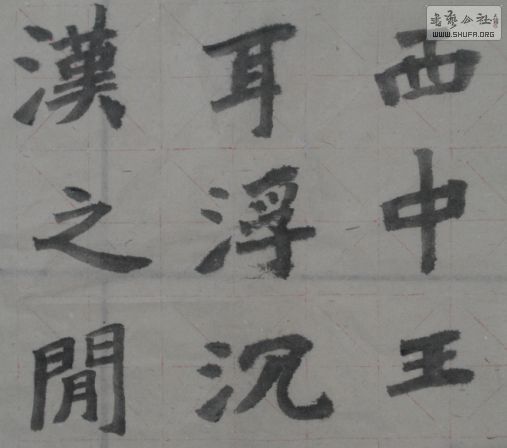 西中王
耳浮沉
漢之閒
書藝公社
WWW.SHUFA.ORG